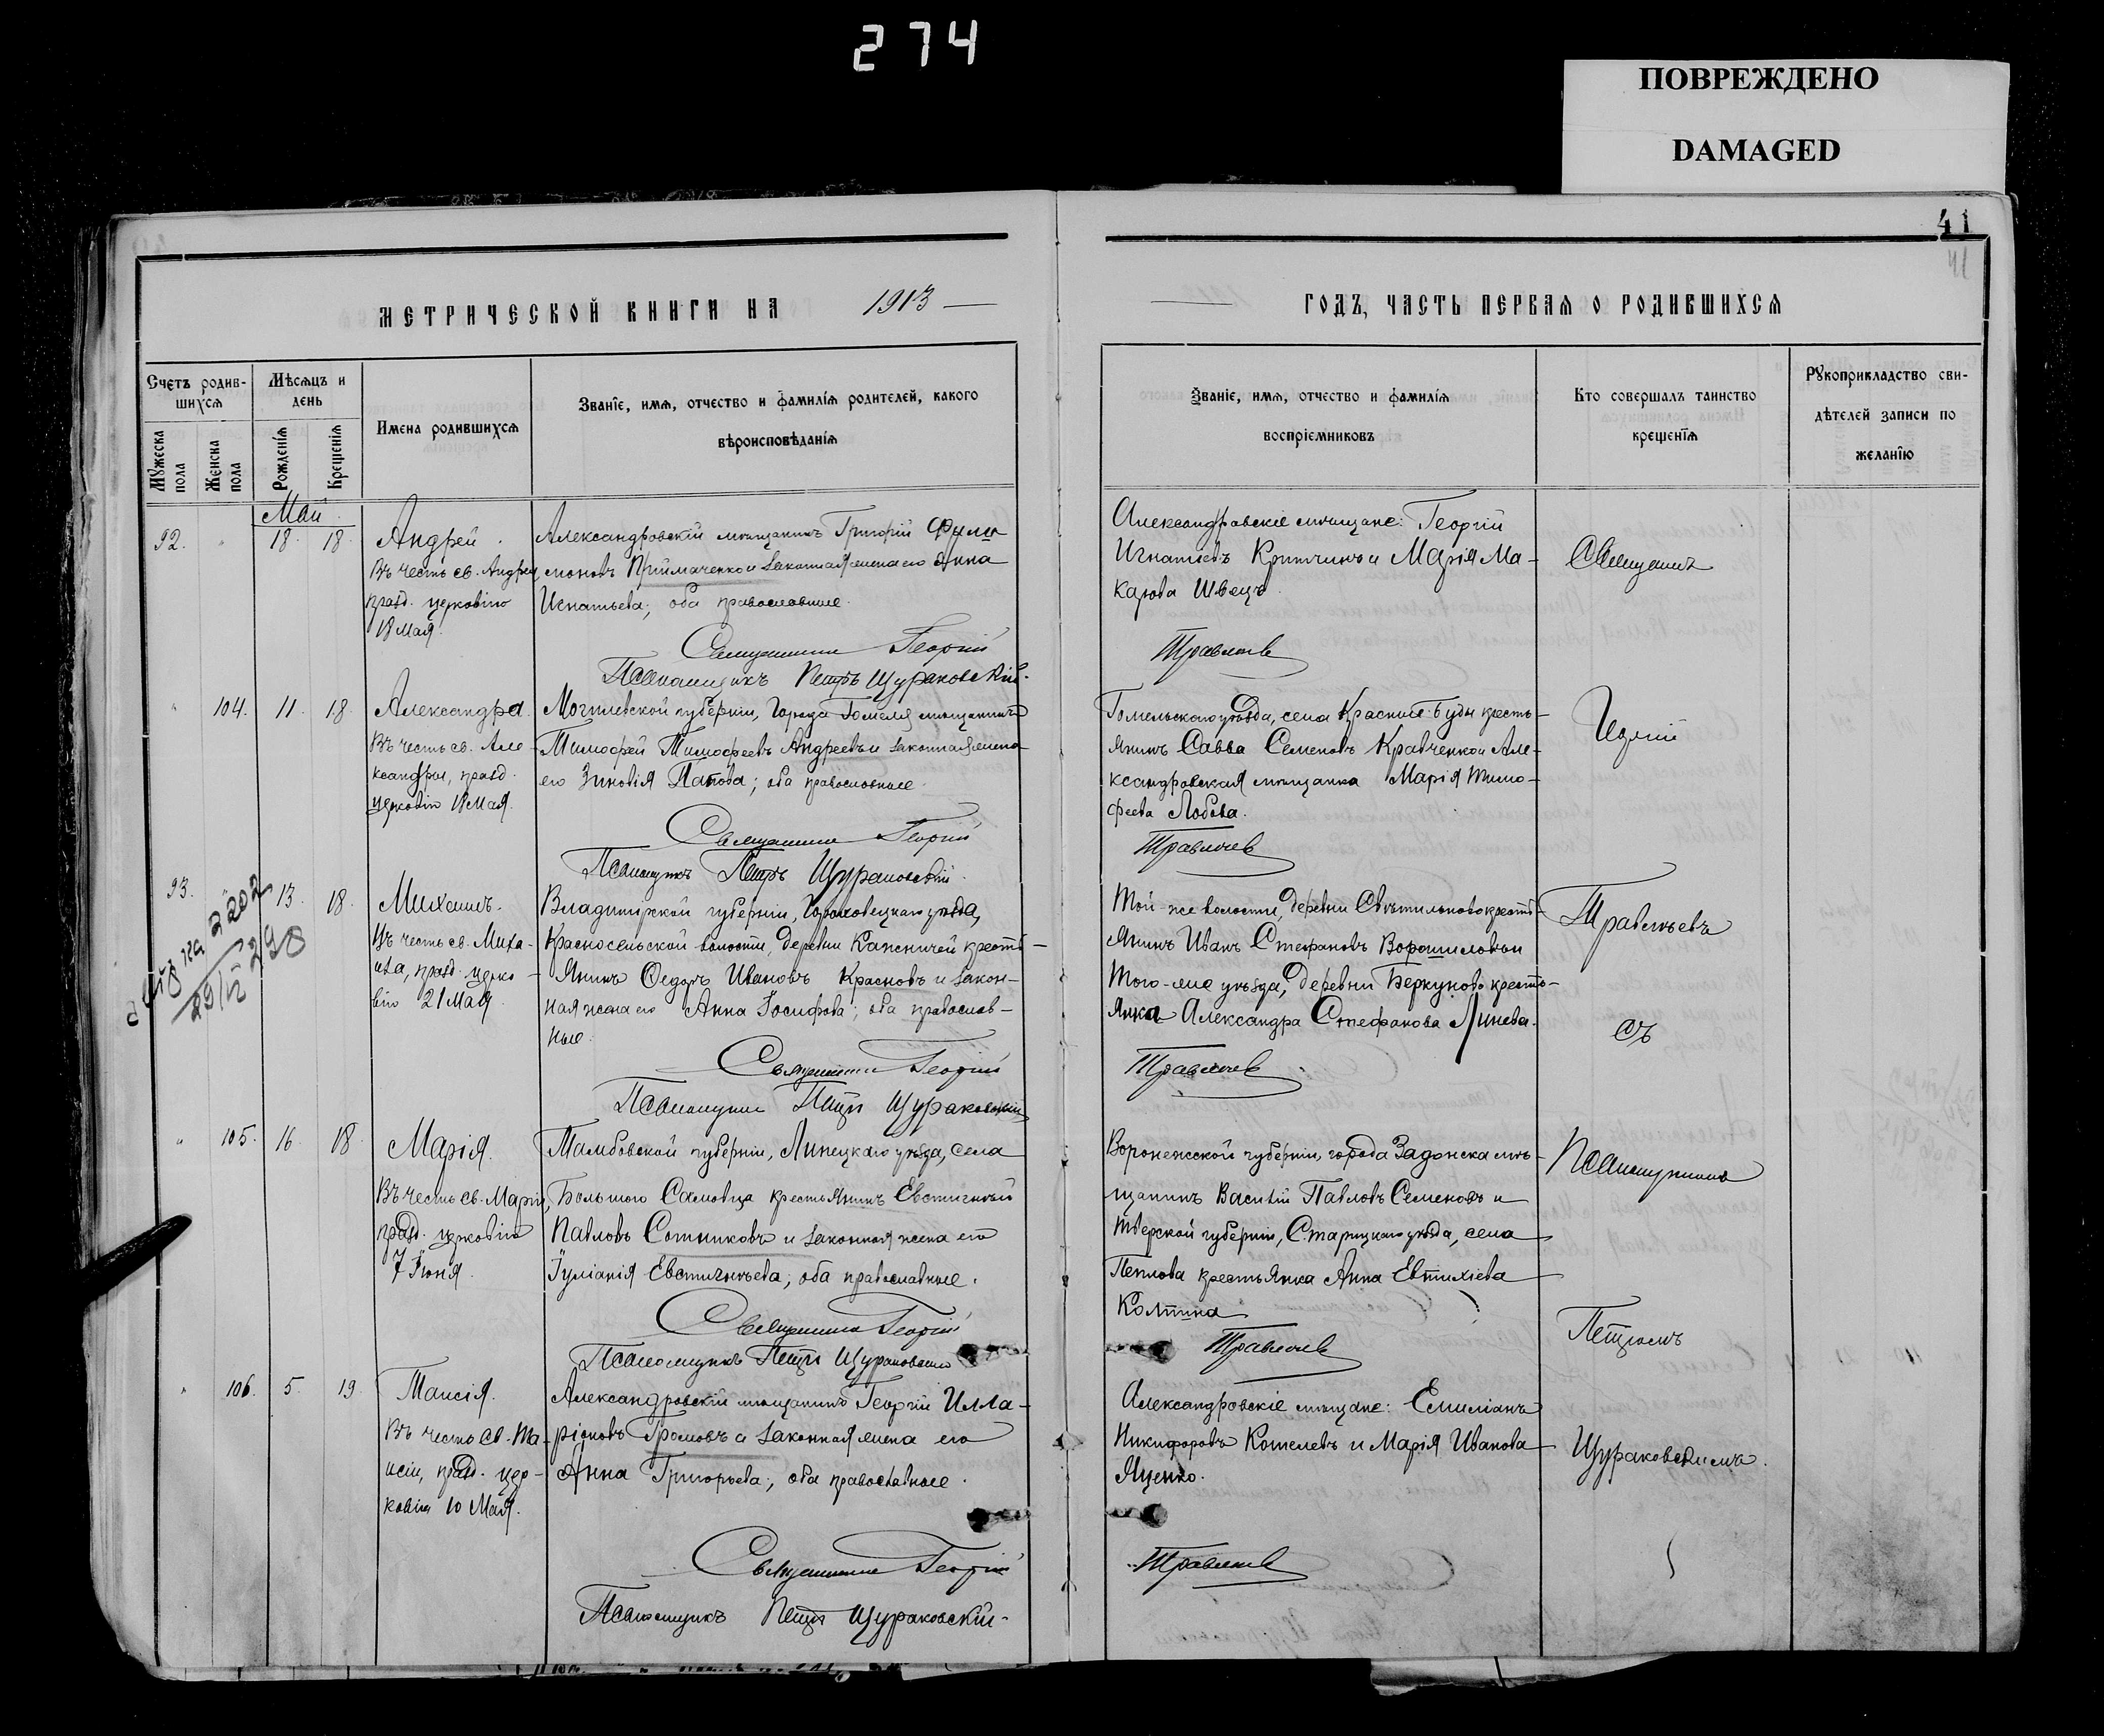 274
ПОВРЕЖДЕНО
DAMAGED
41
41
МЕТРИЧЕСКОЙ КНИГИ НА 1913
ГОДЪ, ЧАСТЬ ПЕРВАЯ О РОДИВШИХСЯ
Счетъ родив-
шихся
Мѣсяцъ и
день
Имена родившихся
Званіе, имя, отчество и фамилія родителей, какого
вѣроисповѣданія
Мужеска
пола
Женска
пола
Рожденія
Крещенія
Званіе, имя, отчество и фамилія
воспріемниковъ
Кто совершалъ таинство
крещенія
Рукоприкладство сви-
дѣтелей записи по
желанію
Май
92. 18 18
Андрей.
Въ честь св. Андрея
празд. церковію
18 Мая.
Александровскій мѣщанинъ Григорій Фили
моновъ Приймаченко и законная жена его Анна
Игнатьева; оба православные.
Священникъ Георгій
Псаломщикъ Петръ Щураковскій.
Александровскіе мѣщане: Георгій
Игнатіевъ Критчинъ и Марія Ма-
карова Швецъ.
Травлѣевъ
Священникъ
104. 11. 18.
Александра
Въ честь св. Але-
ксандры, празд.
церковію 18 Мая.
Могилевской губерніи, города Гомеля мѣщанинъ
Тимофей Тимофеевъ Андреевъ и законная жена
его Зиновія Папова; оба православные.
Священникъ Георгій
Псаломщикъ Петръ Щураковскій.
Гомельскаго уѣзда, села Красные Буды кресть-
янинъ Савва Семеновъ Кравченко и Але-
ксандровская мѣщанка Марія Тимо-
феева Лобова.
Травлѣевъ
Георгій
93. 13. 18.
2202
29/IV 298
Михаилъ.
Въ честь св. Миха-
ила, празд. церко-
вію 21 Мая.
Владимірской губерніи, Гороховецкаго уѣзда,
Красносельской волости, деревни кресть-
янинъ Ѳедоръ Ивановъ Красновъ и закон-
ная жена его Анна Іосифова; оба православ-
ные.
Священникъ Георгій
Псаломщикъ Петръ Щураковскій
Той-же волости, деревни Свѣтильново кресть-
янинъ Иванъ Стефановъ Ворошиловъ и
того-же уѣзда, деревни Беркуново кресть-
янка Александра Стефанова Линева.
Травлѣевъ
Травлѣевъ
съ
105. 16 18
Марія.
Въ честь св. Маріи,
празд. церковію
7 Іюня.
Тамбовской губерніи, Липецкаго уѣзда, села
Большого Самовца крестьянинъ Евстигней
Павловъ Сотниковъ и законная жена его
Іуліанія Евстигнѣева; оба православные.
Священникъ Георгій
Псаломщикъ Петръ Щураковскій
Воронежской губерніи, города Задонска мѣ-
щанинъ Василій Павловъ Семеновъ и
Тверской губерніи, Старицкаго уѣзда, села
Пеплова крестьянка Анна Евтихіева
Колтина
Травлѣевъ
Псаломщикомъ
Петромъ
106. 5. 19.
Таисія.
Въ честь св. Та-
исіи, празд. цер-
ковію 10 Мая.
Александровскій мѣщанинъ Георгій Илла-
ріоновъ Громовъ и законная жена его
Анна Григорьева; оба православные.
Священникъ Георгій
Псаломщикъ Петръ Щураковскій.
Александровскіе мѣщане: Емиліанъ
Никифоровъ Кошелевъ и Марія Иванова
Яценко.
Травлѣевъ
Щураковскимъ.